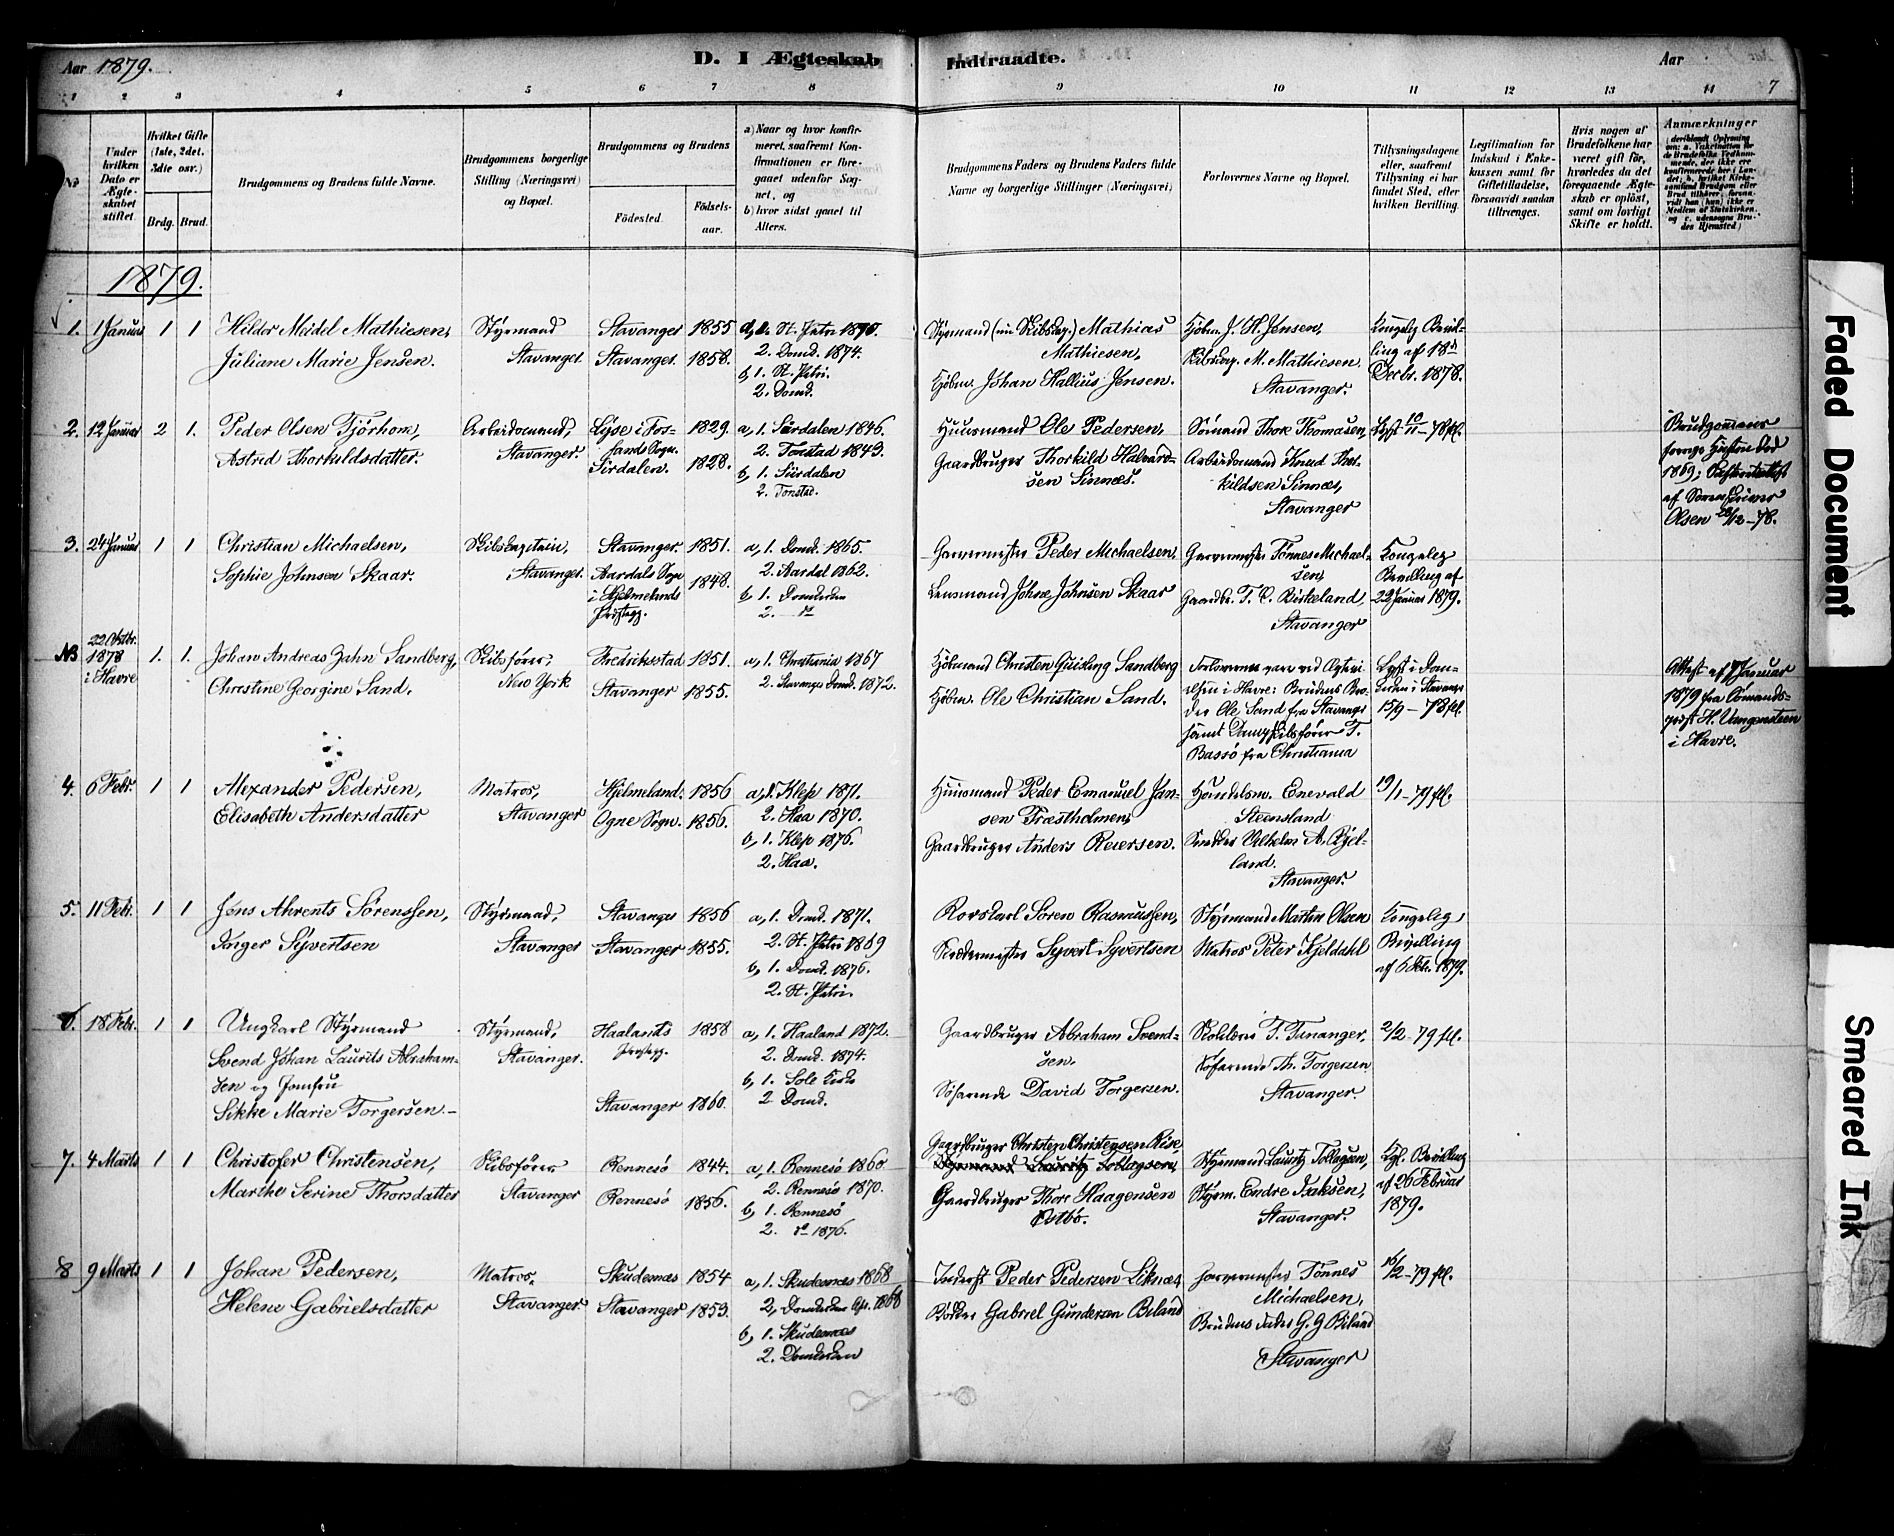 Aar 1879.
D. I Ægteskab Indtraadte.
Aar
7
1 2 3 4 5 6 7 8 9 10 11 12 13 14
No
Under hvilken Dato er Ægteskabet stiftet.
Hvilket Gifte (1ste, 2det, 3die osv.)
Brdg. Brud.
Brudgommens og Brudens fulde Navne.
Brudgommens borgerlige Stilling (Næringsvei) og Bopæl.
Brudgommens og Brudens
Födested. Födselsaar.
a) Naar og hvor konfirmeret, saafremt Konfirmationen er foregaaet udenfor Sognet, og
b) hvor sidst gaaet til Alters.
Brudgommens Faders og Brudens Faders fulde Navne og borgerlige Stillinger (Næringsvei)
Forlovernes Navne og Bopæl.
Tillysningsdagene eller, saafremt Tillysning ei har fundet Sted, efter hvilken Bevilling.
Legitimation for Indskud i Enkekassen samt for Giftetilladelse, forsaavidt saadan tiltrænges.
Hvis nogen af Brudefolkene har været gift før, hvorledes da det foregaaende Ægteskab er oplöst, samt om lovligt Skifte er holdt.
Anmærkninger
1879.
1. 1 Januar 1 1
Hildor Meidel Mathiesen,
Juliane Marie Jensen.
Styrmand
Stavanger.
Stavanger 1855
Stavanger. 1858.
a, 1. St. Petri 1870.
2. Domk. 1874.
b, 1. St. Petri.
2. Domk.
Styrmand (nu Skibskap.) Mathias
Mathiesen,
Kjöbm. Johan Hallius Jensen.
Kjöbm. J. H. Jensen,
Skibskap. M. Mathiesen
Stavanger.
Kongelig Bevil-
ling af 18de
Decbr. 1878.
2. 12 Januar 2 1.
Peder Olsen Fjörhom,
Astrid Thorkildsdatter.
Arbeidsmand,
Stavanger.
Lyse i Fos-
sands Sogn. 1829.
Sirdalen. 1828.
a, 1. Sirdalen 1846
2. Tonstad 1843.
b, 1. Siirdalen
2. Tonstad.
Huusmand Ole Pedersen,
Gaardbruger Thorkild Halvard-
sen Sinnes.
Sömand Thore Thomasen,
Arbeidsmand Knud Thor-
kildsen Sinnes,
Stavanger
Lyst 10/11-78 fl.
Brudgommens
forrige Hustru död
1869;
af Soren
Olsen 28/12-78.
3. 24 Januar 1 1
Christian Michaelsen,
Sophie Johnsen Skaar.
Skibscaptain,
Stavanger.
Stavanger. 1851.
Aardals Sogn
i Hjelmelands 1848.
Prstgj.
a, 1. Domk. 1865.
2. Aardal 1862.
b, 1. Domkirken
2. do
Garvermester Peder Michaelsen
Lensmand Johne Johnsen Skaar
Garvermester Tönnes Michael-
sen,
Gaardbr. T. C. Birkeland,
Stavanger
Kongelig
Bevilling af
22 Januar 1879.
NB 22 Octbr. 1878 i Havre 1. 1.
Johan Andreas Zahn Sandberg,
Christine Georgine Sand.
Skibsförer,
New York
Fredriksstad 1851.
Stavanger 1855.
a, 1. Christiania 1867
2. Stavanger Domk. 1872.
Kjöbmand Christen Quisling Sandberg
Kjöbm. Ole Christian Sand.
Forloverne vare ved Egtevi-
elsen i Havre: Brudens Bro-
der Ole Sand fra Stavanger
samt Dampskibsförer T.
Bassö fra Christiania
Lyst i Dom-
kirken i Stavanger
15/9-78 fl.
Attest af 7 Januar
1879 fra Sömands-
prest H. Vangensteen
i Havre.
4. 6 Febr. 1 1
Alexander Pedersen,
Elisabeth Andersdatter
Matros,
Stavanger
Hjelmeland. 1856
Ogne Sogn. 1856.
a, 1. Klep 1871.
2. Haa 1870.
b, 1. Klep 1876.
2. Haa.
Huusmand Peder Emanuel Jan-
sen Træstholmen,
Gaardbruger Anders Reiersen.
Handelsm. Enevald
Steensland
Snedker Vilhelm A. Bjel-
land.
Stavanger.
19/1-79 fl.
5. 11 Febr. 1 1
Jens Ahrents Sörenssen,
Inger Syvertsen
Styrmand,
Stavanger
Stavanger 1856
Stavanger 1855.
a, 1. Domk. 1871.
2. St. Petri 1869
b, 1. Domk. 1876.
2. St. Petri.
Rorskarl Sören Rasmussen,
Skrædermester Syvert Syvertsen
Styrmand Martin Olsen
Matros Peter Kjeldahl
Kongelig
Bevilling
af 6 Feb. 1879.
6. 18 Febr. 1 1
Ungkarl Styrmand
Svend Johan Laurits Abraham-
sen og Jomfru
Sikke Marie Torgersen.
Styrmand,
Stavanger.
Haalands 1858
Prstgj.
Stavanger 1860.
a, 1. Haaland 1872.
2. Domk. 1874.
b, 1. Sole Kirke
2. Domk.
Gaardbruger Abraham Svend-
sen.
Söfarende David Torgersen.
Skolelærer T. Tananger,
Söfarende Th. Torgersen
Stavanger.
2/2-79 fl.
7. 4 Marts 1 1
Christofer Christensen,
Marthe Serine Thorsdatter
Skibsförer
Stavanger
Rennesö 1844.
Rennesö 1856.
a, 1. Rennesö 1860
2. Rennesö 1870.
b, 1. Rennesö
2. do 1876.
Gaardbruger Christen Christensen Rise,
Styrmand Lauritz Tollagsen,
Gaardbruger Thore Haagensen
Östbö.
Styrmand Lauritz Tollagsen,
Styrm. Endre Isaksen,
Stavanger.
Kgl. Bevilling
af 26 Februar
1879.
8 9 Marts 1 1
Johan Pedersen,
Helene Gabrielsdatter
Matros,
Stavanger
Skudesnæs 1854
Stavanger 1853.
a, 1. Skudesnæs 1868
2, Domkirken Apr. 1868
b, 1. Skudesnæs
2. Domkirken
Inderst Peder Pedersen Liknæs
Bödker Gabriel Gundersen Biland
Garvermester Tönnes
Michaelsen,
Brudens Fader G. G. Biland
Stavanger
16/2-79 fl.
Faded Document
Smeared Ink